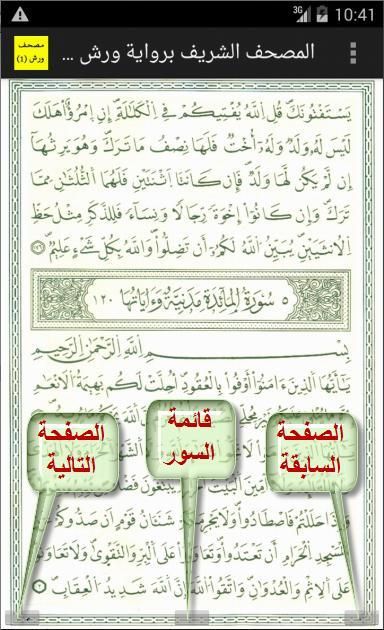 3G 10:41
مصحف
ورش (1)
المصحف الشريف برواية ورش ...
يَسْتَفْتُونَكَ قُلِ اِللَّهُ يُفْتِيكُمْ فِي اِلْكَلَالَةِ إِنِ اِمْرُؤٌاْ هَلَكَ
لَيْسَ لَهُ وَلَدٌ وَلَهُ أُخْتٌ فَلَهَا نِصْفُ مَا تَرَكَ وَهُوَ يَرِثُهَا
إِن لَّمْ يَكُن لَّهَا وَلَدٌ فَإِن كَانَتَا اَثْنَتَيْنِ فَلَهُمَا اَلثُّلُثَٰنِ مِمَّا
تَرَكَ وَإِن كَانُوٓاْ إِخْوَةً رِّجَالًا وَنِسَآءً فَلِلذَّكَرِ مِثْلُ حَظِّ
اِلُانثَيَيْنِ يُبَيِّنُ اُللَّهُ لَكُمُۥٓ أَن تَضِلُّواْ وَاللَّهُ بِكُلِّ شَيْءٍ عَلِيمٌ
٥ سُورَةُ الْمَائِدَةِ مَدَنِيَّةٌ وَءَايَاتُهَا ١٢٠
بِسْمِ اِللَّهِ اِلرَّحْمَٰنِ اِلرَّحِيمِ
يَٰٓأَيُّهَا اَلَّذِينَ ءَامَنُوٓاْ أَوْفُواْ بِالْعُقُودِ أُحِلَّتْ لَكُم بَهِيمَةُ اُلَانْعَٰمِ
الصفحة السابقة
قائمة السور
الصفحة التالية
وَإِذَا حَلَلْتُمْ فَاصْطَادُواْ وَلَا يَجْرِمَنَّكُمْ شَنَـَٔانُ قَوْمٍ أَن صَدُّوكُمْ
اِلْمَسْجِدِ اِلْحَرَامِ أَن تَعْتَدُواْ وَتَعَاوَنُواْ عَلَى اَلْبِرِّ وَالتَّقْوَىٰ وَلَا تَعَاوَنُواْ
عَلَى اَلِاثْمِ وَالْعُدْوَٰنِ وَاتَّقُواْ اُللَّهَ إِنَّ اَللَّهَ شَدِيدُ اُلْعِقَابِ